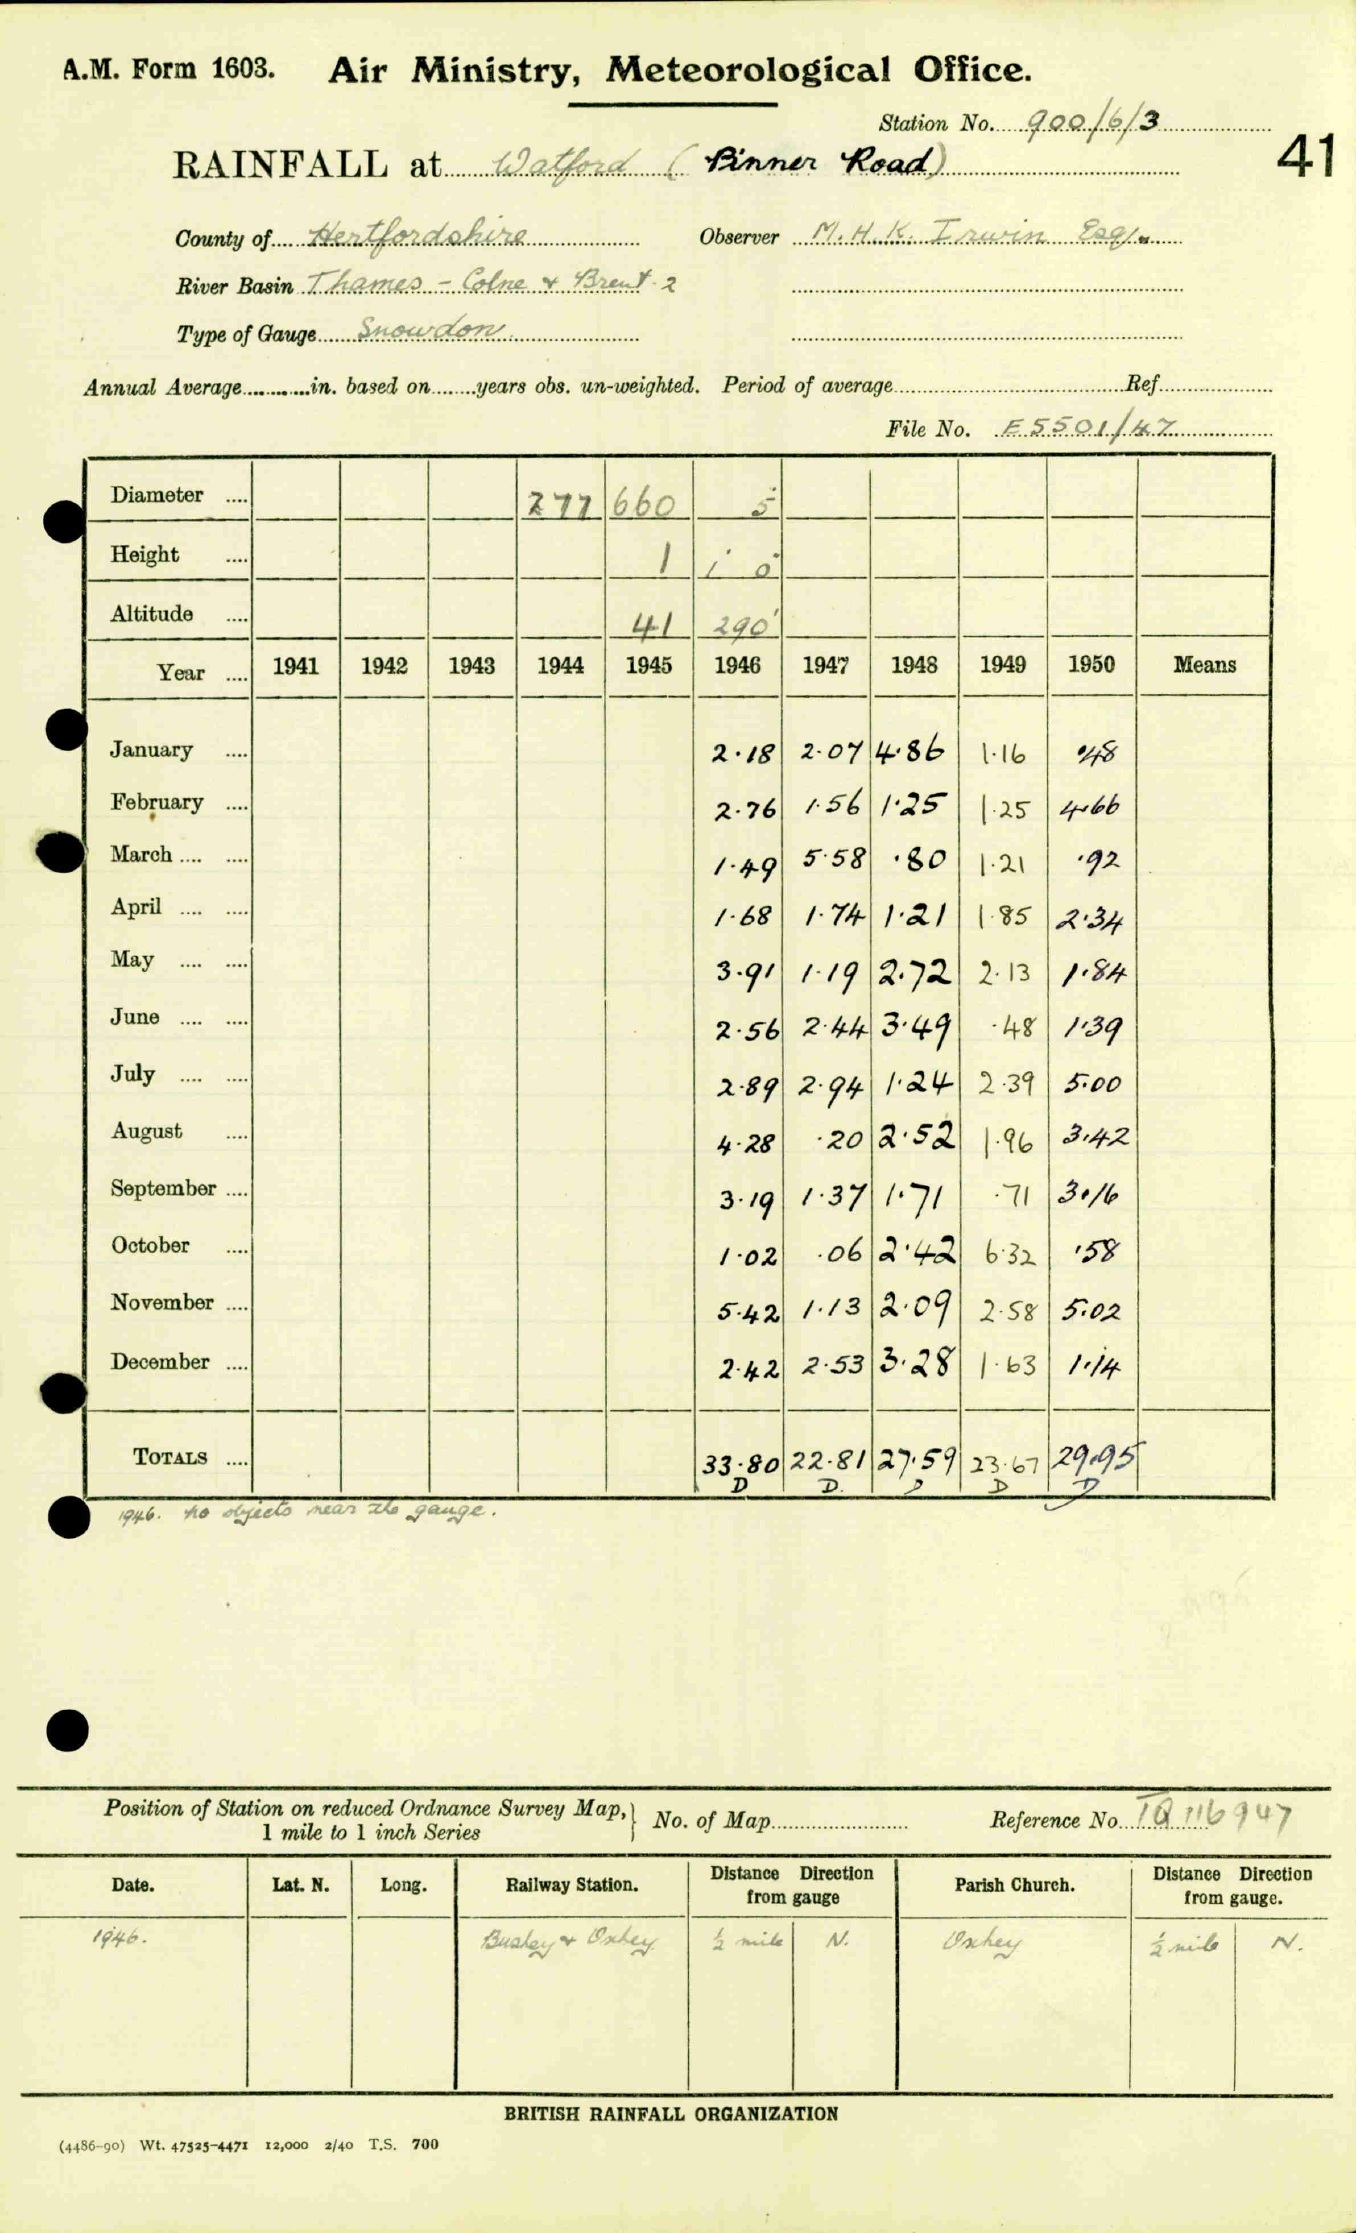 A.M. Form 1603. Air Ministry, Meteorological Office.
Station No. 900/6/3
41
RAINFALL at Watford (Pinner Road)
County of Hertfordshire Observer M. H. K. Irwin Esq.
River Basin Thames - Colne & Brent 2
Type of Gauge Snowdon
Annual Average in. based on years obs. un-weighted. Period of average Ref
File No. E5501/47
Diameter 277 660 5
Height 1 1 0
Altitude 41 290'
Year 1941 1942 1943 1944 1945 1946 1947 1948 1949 1950 Means
January 2.18 2.07 4.86 1.16 .48
February 2.76 1.56 1.25 1.25 4.66
March 1.49 5.58 .80 1.21 .92
April 1.68 1.74 1.21 1.85 2.34
May 3.91 1.19 2.72 2.13 1.84
June 2.56 2.44 3.49 .48 1.39
July 2.89 2.94 1.24 2.39 5.00
August 4.28 .20 2.52 1.96 3.42
September 3.19 1.37 1.71 .71 3.16
October 1.02 .06 2.42 6.32 .58
November 5.42 1.13 2.09 2.58 5.02
December 2.42 2.53 3.28 1.63 1.14
TOTALS 33.80 22.81 27.59 23.67 29.95
D D. D D D
1946. No objects near the gauge.
Position of Station on reduced Ordnance Survey Map, 1 mile to 1 inch Series } No. of Map Reference No. TQ 116947
Date. Lat. N. Long. Railway Station. Distance Direction from gauge Parish Church. Distance Direction from gauge.
1946. Bushey & Oxhey ½ mile N. Oxhey ½ mile N.
BRITISH RAINFALL ORGANIZATION
(4486-90) Wt. 47525-4471 12,000 2/40 T.S. 700